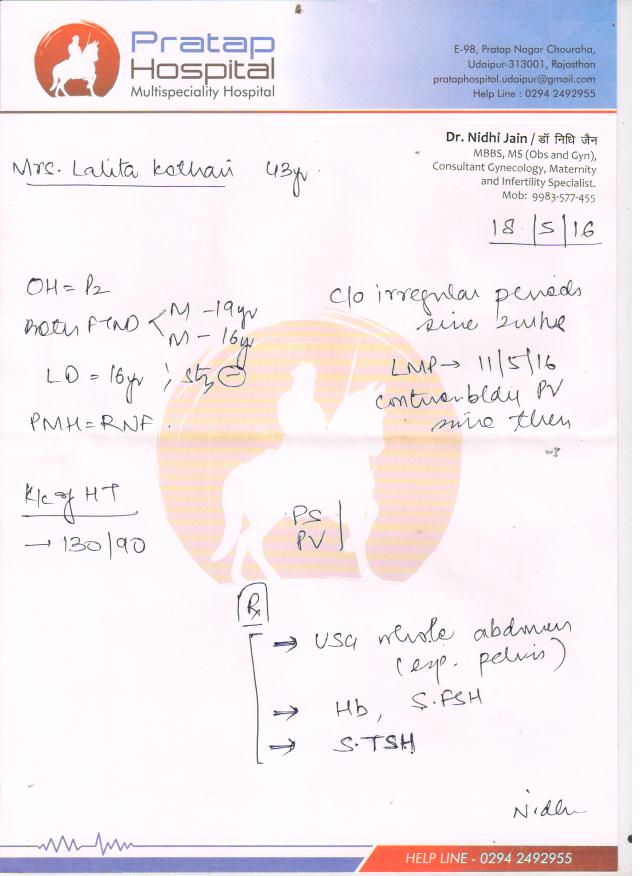 Pratap
Hospital
Multispeciality Hospital
E-98, Pratap Nagar Chouraha,
Udaipur-313001, Rajasthan
prataphospital.udaipur@gmail.com
Help Line : 0294 2492955
Dr. Nidhi Jain / डॉ निधि जैन
MBBS, MS (Obs and Gyn),
Consultant Gynecology, Maternity
and Infertility Specialist.
Mob: 9983-577-455
Mrs. Lalita Kothari 43yr
18/5/16
OH = P2
Both FTND < M - 19yr
M - 16yr
LD = 16yr ;
PMH = RNF.
C/o irregular periods
since
LMP → 11/5/16
PV
since then
K/c of HT
→ 130/90
PS
PV
Rx
→ USG whole abdomen
(esp. pelvis)
→ Hb, S.FSH
→ S.TSH
Nidhi
HELP LINE - 0294 2492955